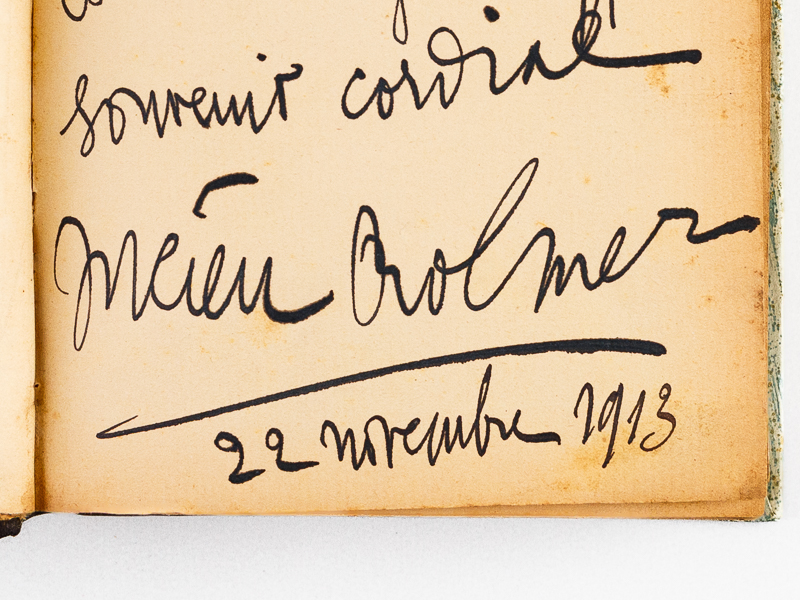 souvenir cordial
Lucien Rolmer
22 novembre 1913